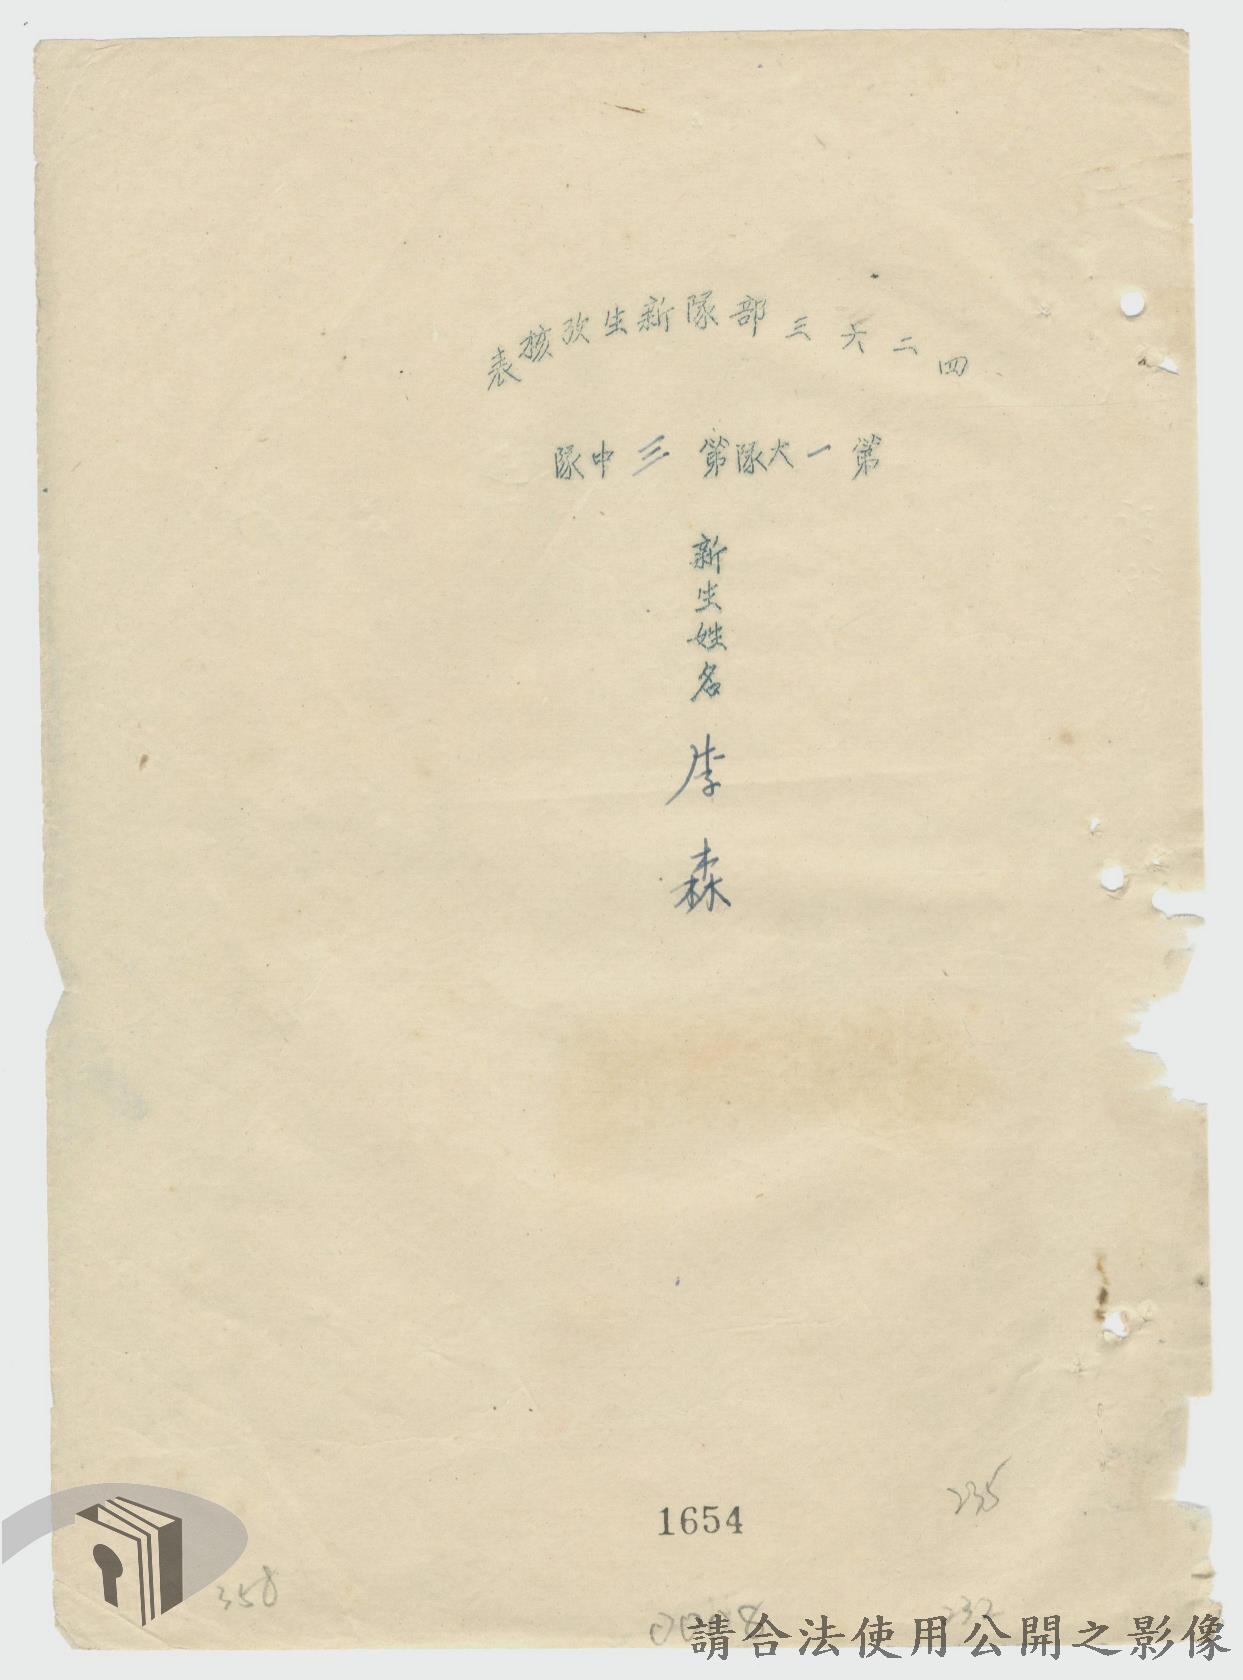 四二六三部隊新生攷核表
第一大隊第三中隊
新生姓名 李森
235
1654
358
232
請合法使用公開之影像